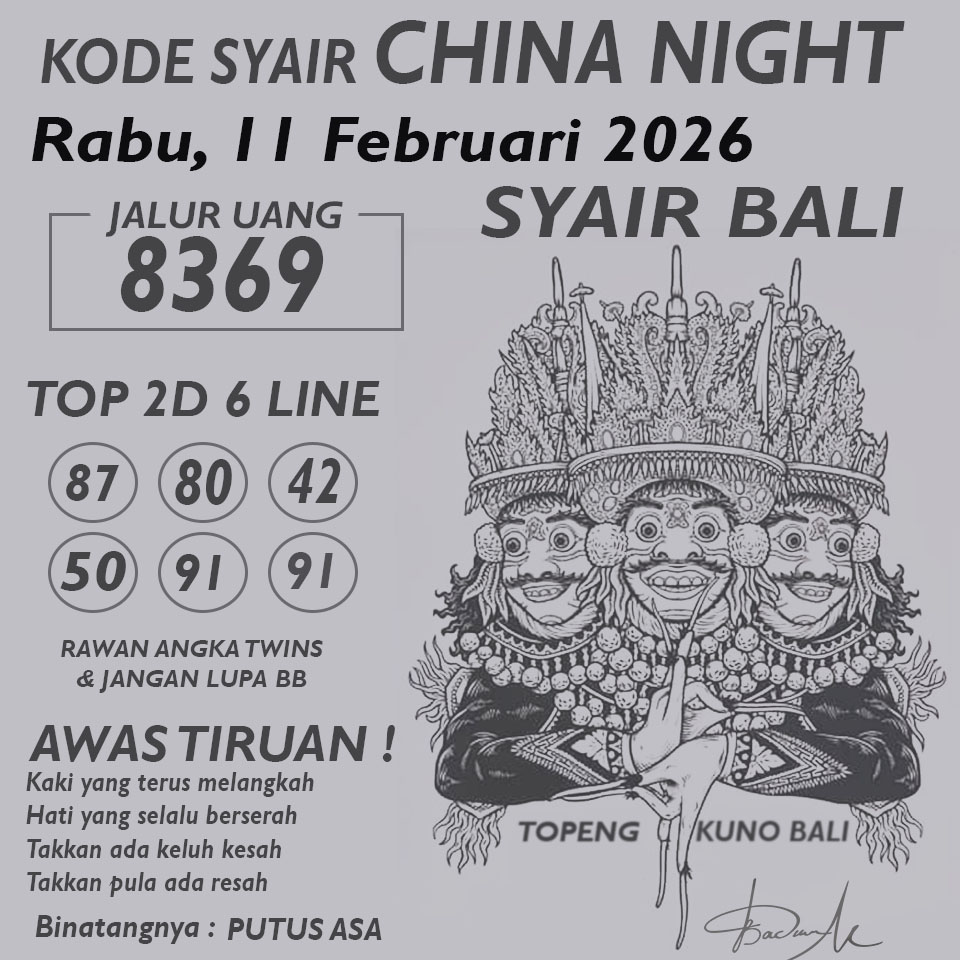 KODE SYAIR CHINA NIGHT
Rabu, 11 Februari 2026
SYAIR BALI
JALUR UANG
8369
TOP 2D 6 LINE
87 80 42
50 91 91
RAWAN ANGKA TWINS
& JANGAN LUPA BB
AWAS TIRUAN !
Kaki yang terus melangkah
Hati yang selalu berserah
Takkan ada keluh kesah
Takkan pula ada resah
Binatangnya : PUTUS ASA
TOPENG KUNO BALI